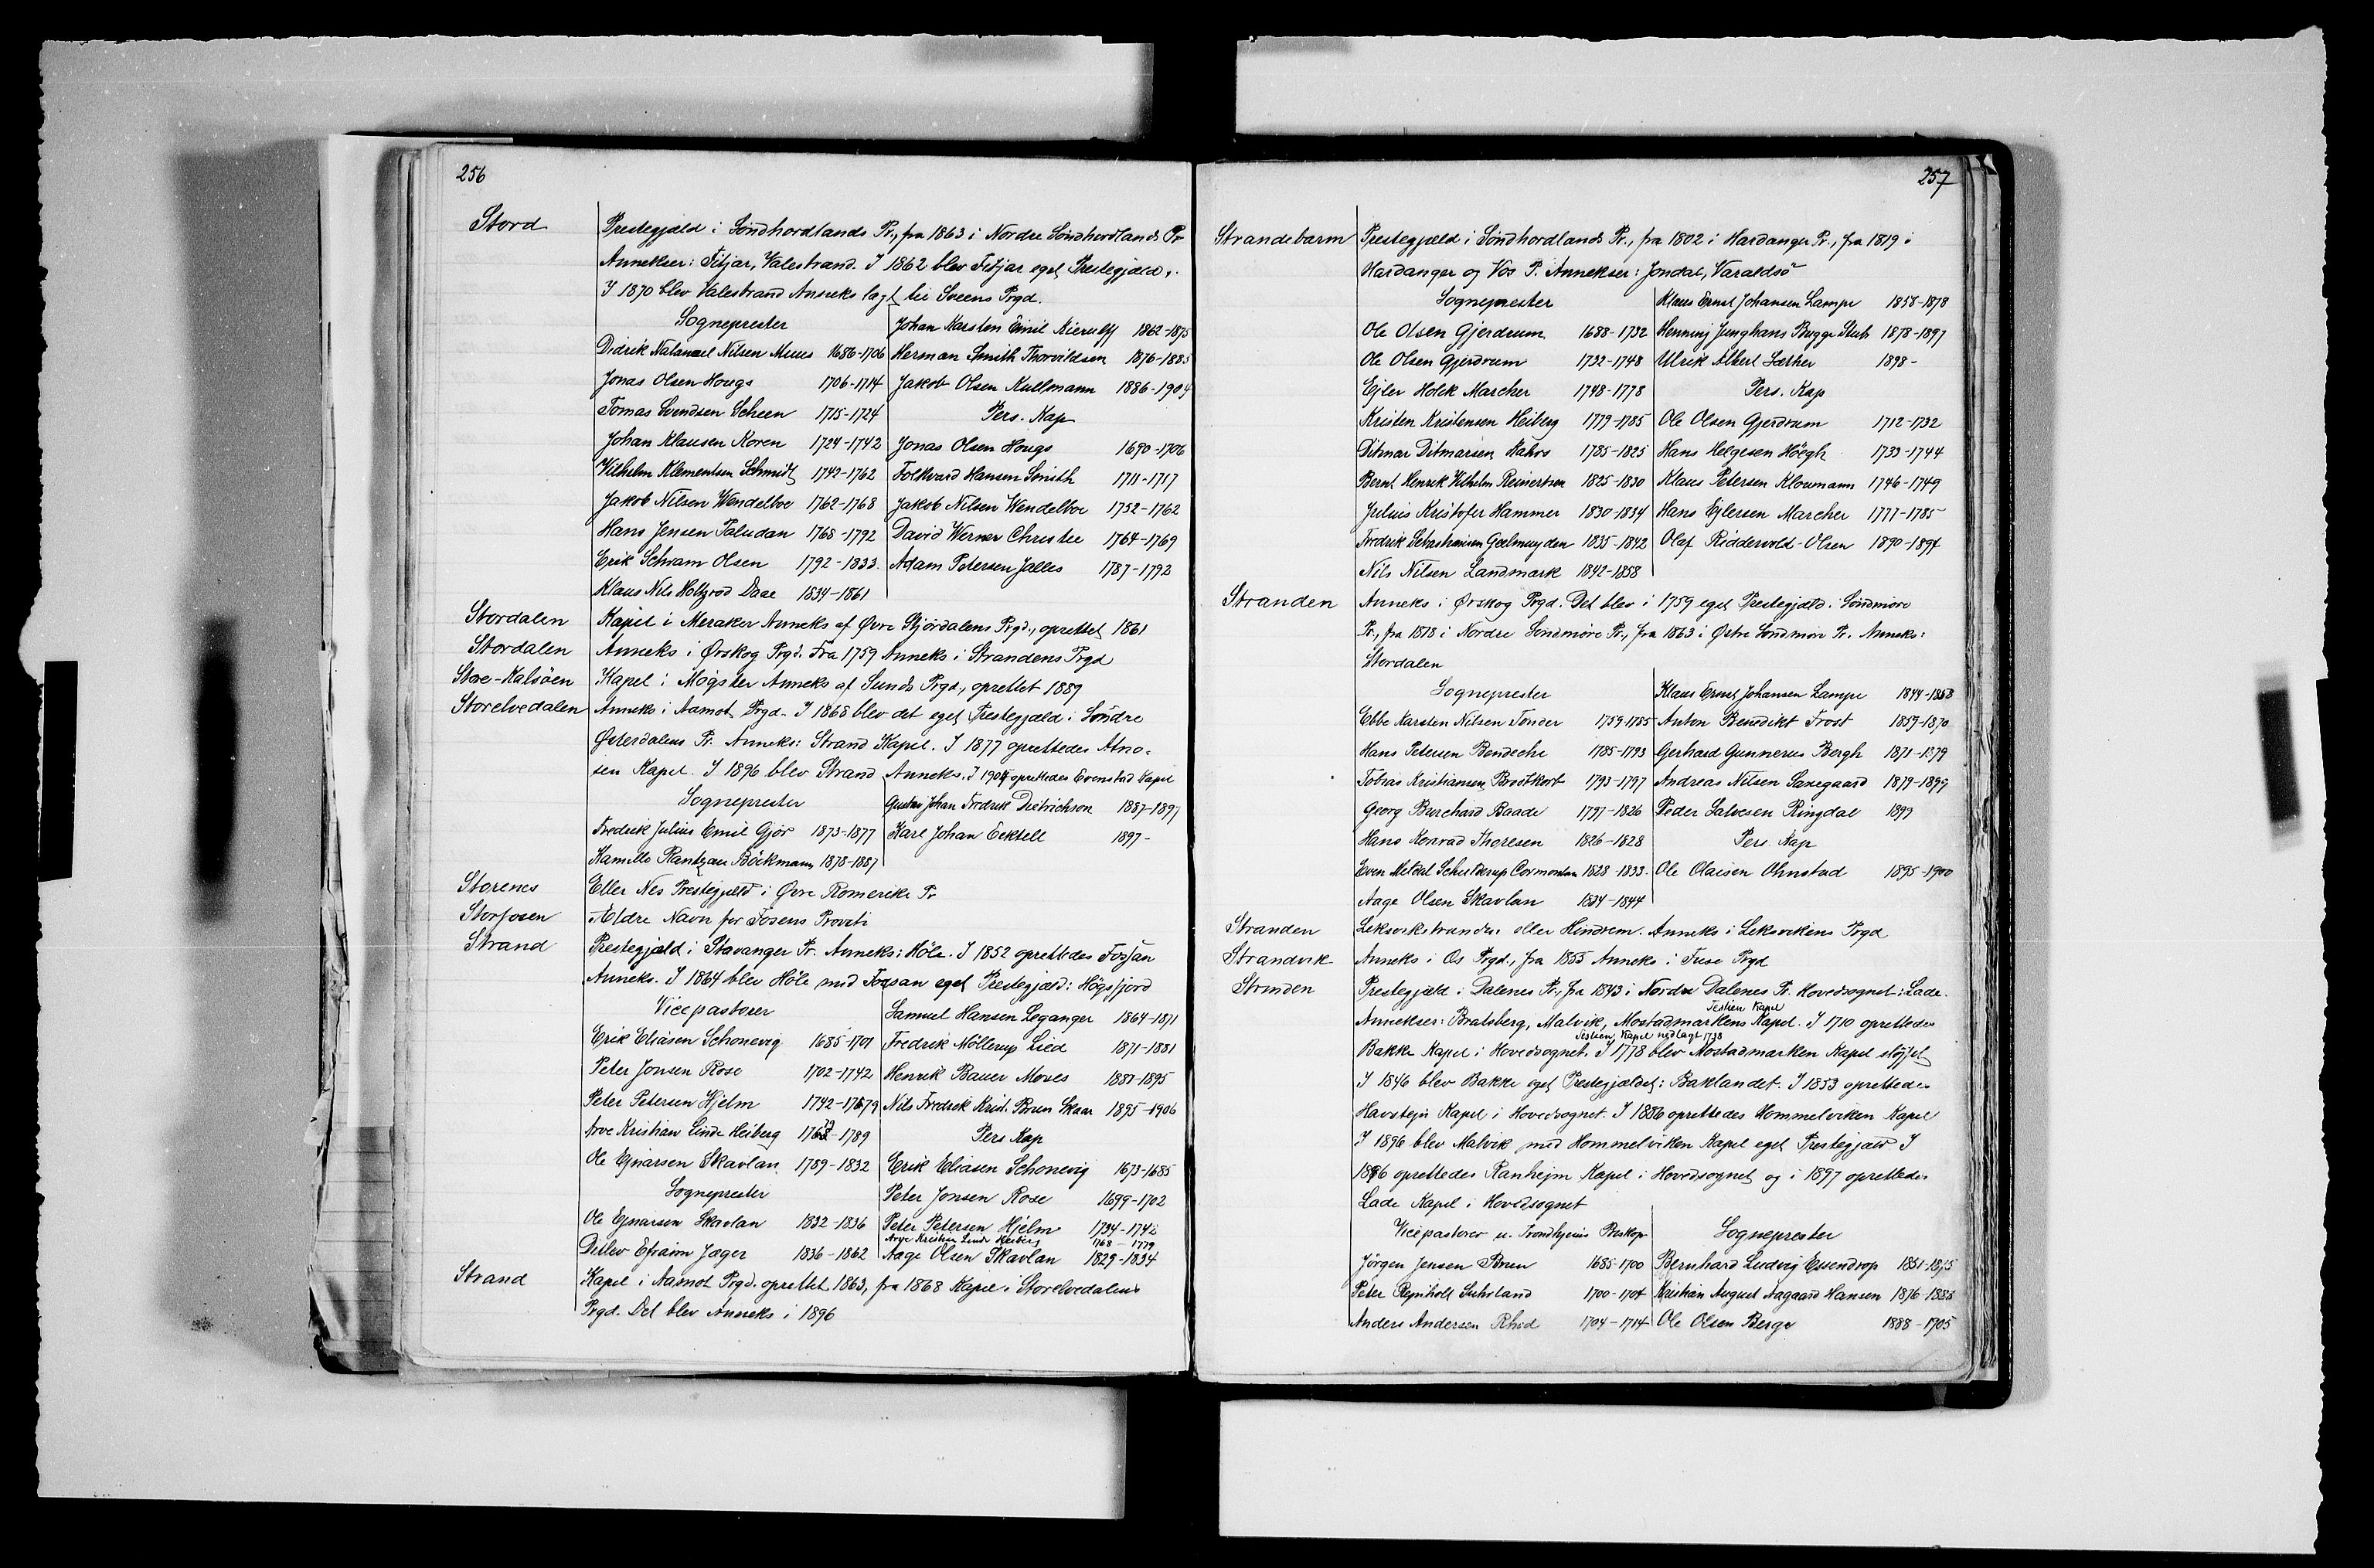 256
Stord
Prestegjæld i Söndhordlands Pr., fra 1863 i Nordre Söndhordlands Pr
Annekser: Fitjar, Valestrand. I 1862 blev Fitjar eget Prestegjæld.
I 1870 blev Valestrand Anneks lagt til Sveens Prgd.
Sogneprester
Didrik Natanael Nilsen Muus 1686-1706
Jonas Olsen Hougs 1706-1714
Tomas Svendsen Scheen 1715-1724
Johan Klausen Koren 1724-1742
Vilhelm Klementsen Schmidt 1742-1762
Jakob Nilsen Wendelboe 1762-1768
Hans Jensen Paludan 1768-1792
Erik Schram Olsen 1792-1833.
Klaus Nils Holtzrod Daae 1834-1861
Johan Karsten Emil Kierulff 1862-1875
Herman Smith Thorvildsen 1876-1885
Jakob Olsen Kullmann 1886-1904
Pers. Kap
Jonas Olsen Hougs 1690-1706
Folkvard Hansen Smith 1711-1717
Jakob Nilsen Wendelboe 1752-1762
David Werner Christie 1764-1769
Adam Petersen Jalles 1787-1792
Stordalen
Kapel i Meraker Anneks af Övre Stjördalens Prgd., oprettet 1861
Stordalen
Anneks i Ørskog Prgd. Fra 1759 Anneks i Strandens Prgd
Store-Kalsöen
Kapel i Mögster Anneks af Sunds Prgd., oprettet 1889
Storelvedalen
Anneks i Aamot Prgd. I 1868 blev det eget Prestegjæld i Söndre
Østerdalens Pr. Anneks: Strand Kapel. I 1877 oprettedes Atno-
sen Kapel. I 1896 blev Strand Anneks. I 1904 oprettedes Evenstad Kapel
Sogneprester
Fredrik Julius Emil Gjör 1873-1877
Kamillo Rantzau Böckmann 1878-1887
Gustav Johan Fredrik Dietrichson 1887-1897
Karl Johan Ecktell 1897-
Storenes
Eller Nes Prestegjæld i Övre Romerike Pr
Storfosen
Ældre Navn for Fosens Provsti
Strand
Prestegjæld i Stavanger Pr. Anneks: Höle. I 1852 oprettedes Fossan
Anneks. I 1864 blev Höle med Fossan eget Prestegjæld: Högsfjord
Vicepastorer
Erik Eliasen Schonevig 1685-1701
Peter Jonsen Rose 1702-1742
Peter Petersen Hjelm 1742-1779
Arve Kristian Linde Heiberg 1779-1789
Ole Ejnarsen Skavlan 1789-1832
Sogneprester
Ole Ejnarsen Skavlan 1832-1836
Detlev Efraim Jæger 1836-1862
Samuel Hansen Leganger 1864-1871
Fredrik Möllerup Lied 1871-1881
Henrik Bauer Moves 1881-1895
Nils Fredrik Krist. Brun Skaar 1895-1906
Pers Kap
Erik Eliasen Schonevig 1673-1685
Peter Jonsen Rose 1699-1702
Peter Petersen Hjelm 1734-1742
Arve Kristian Linde Heiberg 1768-1779
Aage Olsen Skavlan 1829-1834
Strand
Kapel i Aamot Prgd. oprettet 1863, fra 1868 Kapel i Storelvedalens
Prgd. Det blev Anneks i 1896
257
Strandebarm
Prestegjæld i Söndhordlands Pr., fra 1802 i Hardanger Pr., fra 1819 i
Hardanger og Vos P. Annekser: Jondal, Varaldsö
Sogneprester
Ole Olsen Gjerdrum 1688-1732
Ole Olsen Gjerdrum 1732-1748
Ejler Holck Marcher 1748-1778
Kristen Kristensen Heiberg 1779-1785
Ditmar Ditmarsen Kahrs 1785-1825
Bernt Henrik Vilhelm Reinertsen 1825-1830
Julius Kristofer Hammer 1830-1834
Fredrik Sebastiansen Gelmuyden 1835-1842
Nils Nilsen Landmark 1842-1858
Klaus Ernst Johansen Lampe 1858-1878
Henning Junghans Bugge Stub 1878-1897
Ulrik Albert Sæther 1898-
Pers. Kap
Ole Olsen Gjerdrum 1712-1732
Hans Helgesen Höegh 1733-1744
Klaus Petersen Kloumann 1746-1749
Hans Ejlersen Marcher 1777-1785
Olaf Ridderwold-Olsen 1890-1894
Stranden
Anneks i Ørskog Prgd. Det blev i 1759 eget Prestegjæld i Söndmöre
Pr., fra 1818 i Nordre Söndmöre Pr., fra 1863 i Østre Söndmöre Pr. Anneks:
Stordalen
Sogneprester
Ebbe Karsten Nilsen Tönder 1759-1785
Hans Petersen Bendeche 1785-1793
Tobias Kristiansen Brodtkorb 1793-1797
Georg Burchard Baade 1797-1826
Hans Konrad Thoresen 1826-1828
Even Meldal Schjelderup Cormontan 1828-1833.
Aage Olsen Skavlan 1834-1844
Klaus Ernst Johansen Lampe 1844-1858
Anton Benedikt Frost 1859-1870
Gerhard Gunnerus Bergh 1871-1879
Andreas Nilsen Saxegaard 1879-1899
Peder Salvesen Ringdal 1899
Pers. Kap
Ole Olaisen Ohnstad 1895-1900
Stranden
Leksvikstranden eller Hindrem. Anneks i Leksvikens Prgd
Strandvik
Anneks i Os Prgd., fra 1855 Anneks i Fuse Prgd
Strinden
Prestegjæld i Dalenes Pr., fra 1843 i Nordre Dalenes Pr. Hovedsognet: Lade.
Jeslien Kapel
Annekser: Bratsberg, Malvik, Mostadmarkens Kapel. I 1710 oprettedes
Jeslien Kapel nedlagt 1738
Bakke Kapel i Hovedsognet. I 1778 blev Mostadmarken Kapel slöjfet
I 1846 blev Bakke eget Prestegjældet: Baklandet. I 1853 oprettedes
Havstejn Kapel i Hovedsognet. I 1886 oprettedes Hommelviken Kapel
I 1896 blev Malvik med Hommelviken Kapel eget Prestegjæld I
1896 oprettedes Ranhejm Kapel i Hovedsognet og i 1897 oprettedes
Lade Kapel i Hovedsognet
Vicepastorer u. Trondhjems Biskop
Jörgen Jensen Brun 1685-1700
Peter Rejnholt Suhrland 1700-1704
Anders Andersen Rhod 1704-1714
Sogneprester
Bernhard Ludvig Essendrop 1851-1875
Kristian August Aagaard Hansen 1876-1888
Ole Olsen Berge 1888-1905